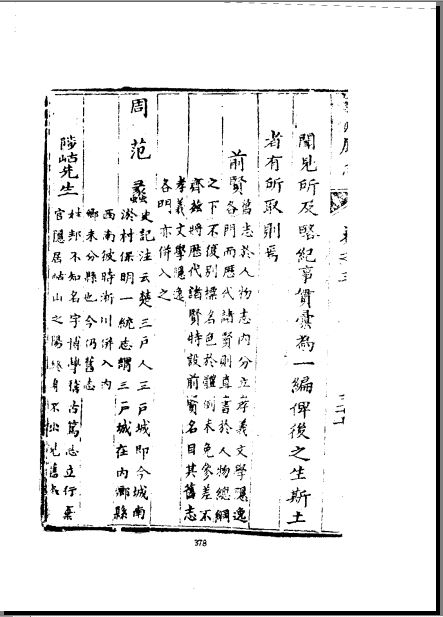 聞見所及略紀事實彙為一編俾後之生斯土
者有所取則焉
前賢
舊志於人物志內分立孝義文學隱逸
各門而歷代諸賢則直書於人物總綱
之下不復別標名色於體例未免參差不
齊茲將歷代諸賢特設前賢名目其舊志
孝義文學隱逸
各門亦併入之
周
范蠡
史記注云楚三戶人三戶城即今城南
淤村保明一統志謂三戶城在內鄉縣
西南彼時淅川併入內
鄉未分縣也今仍舊志
陟岵先生
杜邦不知名字博學稽古篤志立行棄
官隱居岵山之陽終身不出見舊志
378